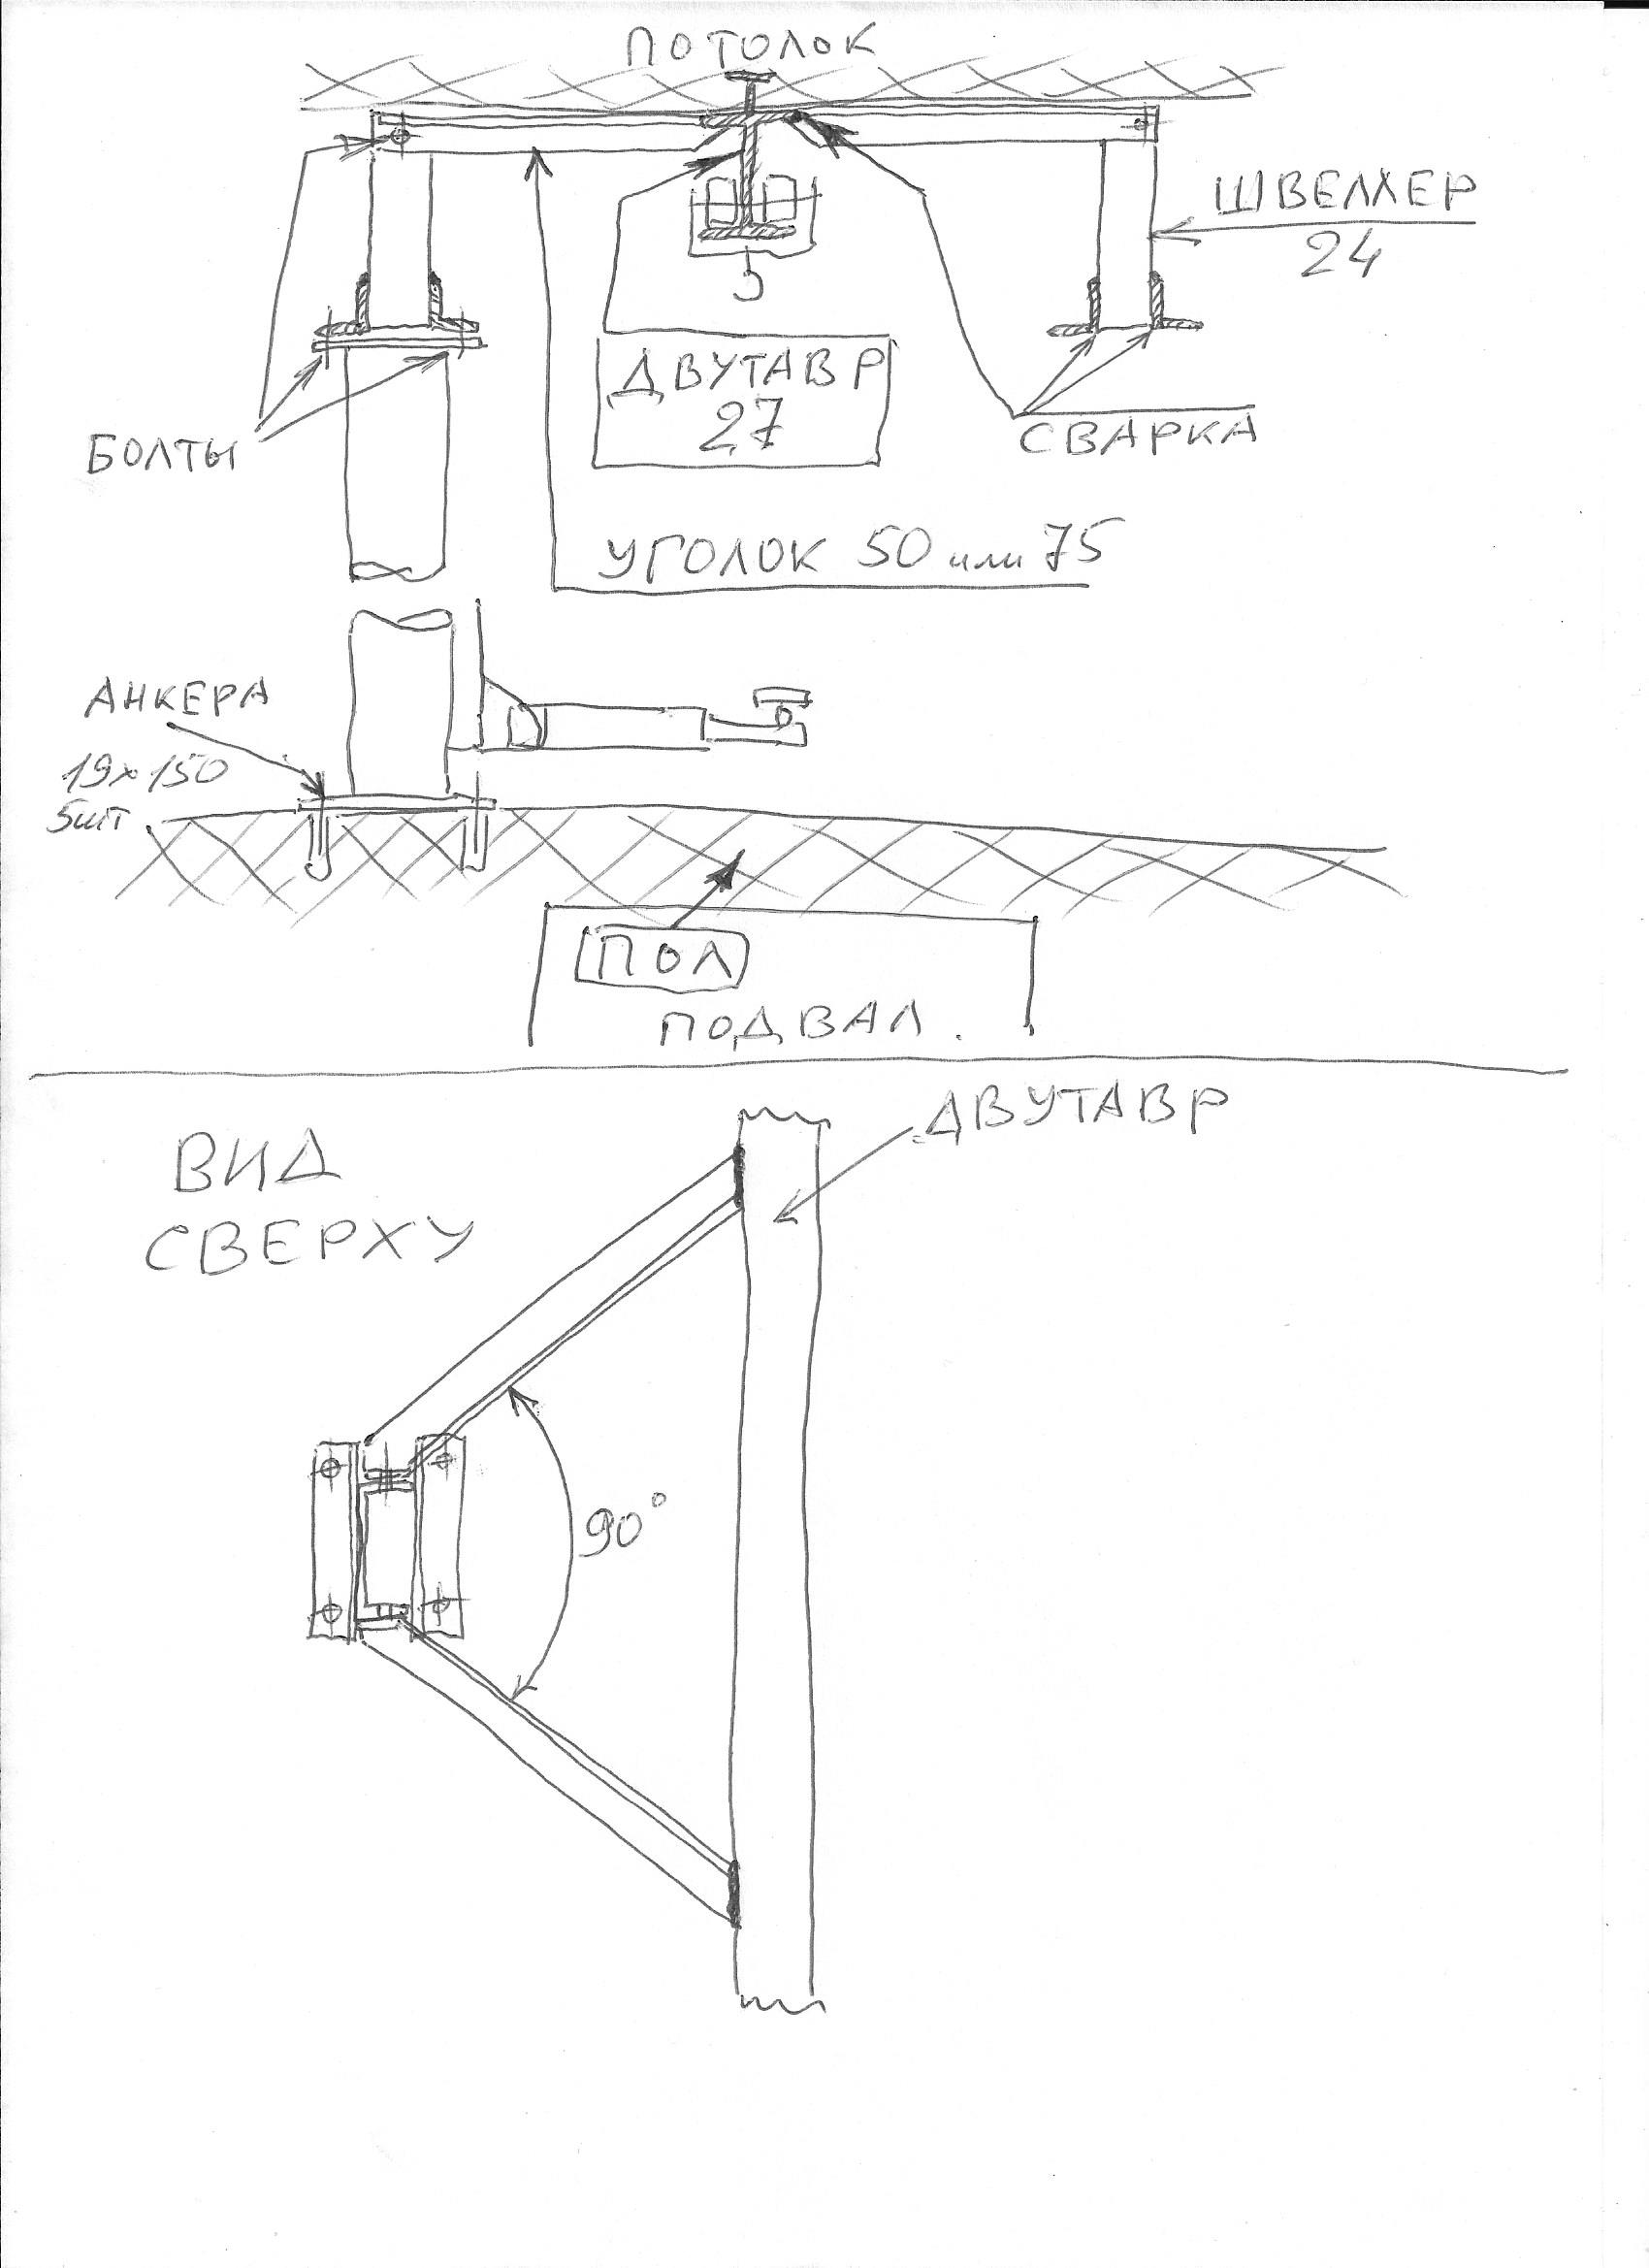 ПОТОЛОК
ШВЕЛЛЕР
24
ДВУТАВР
27
БОЛТЫ
СВАРКА
УГОЛОК 50 или 75
АНКЕРА
19х150
5шт
ПОЛ
ПОДВАЛ.
ДВУТАВР
ВИД
СВЕРХУ
90°